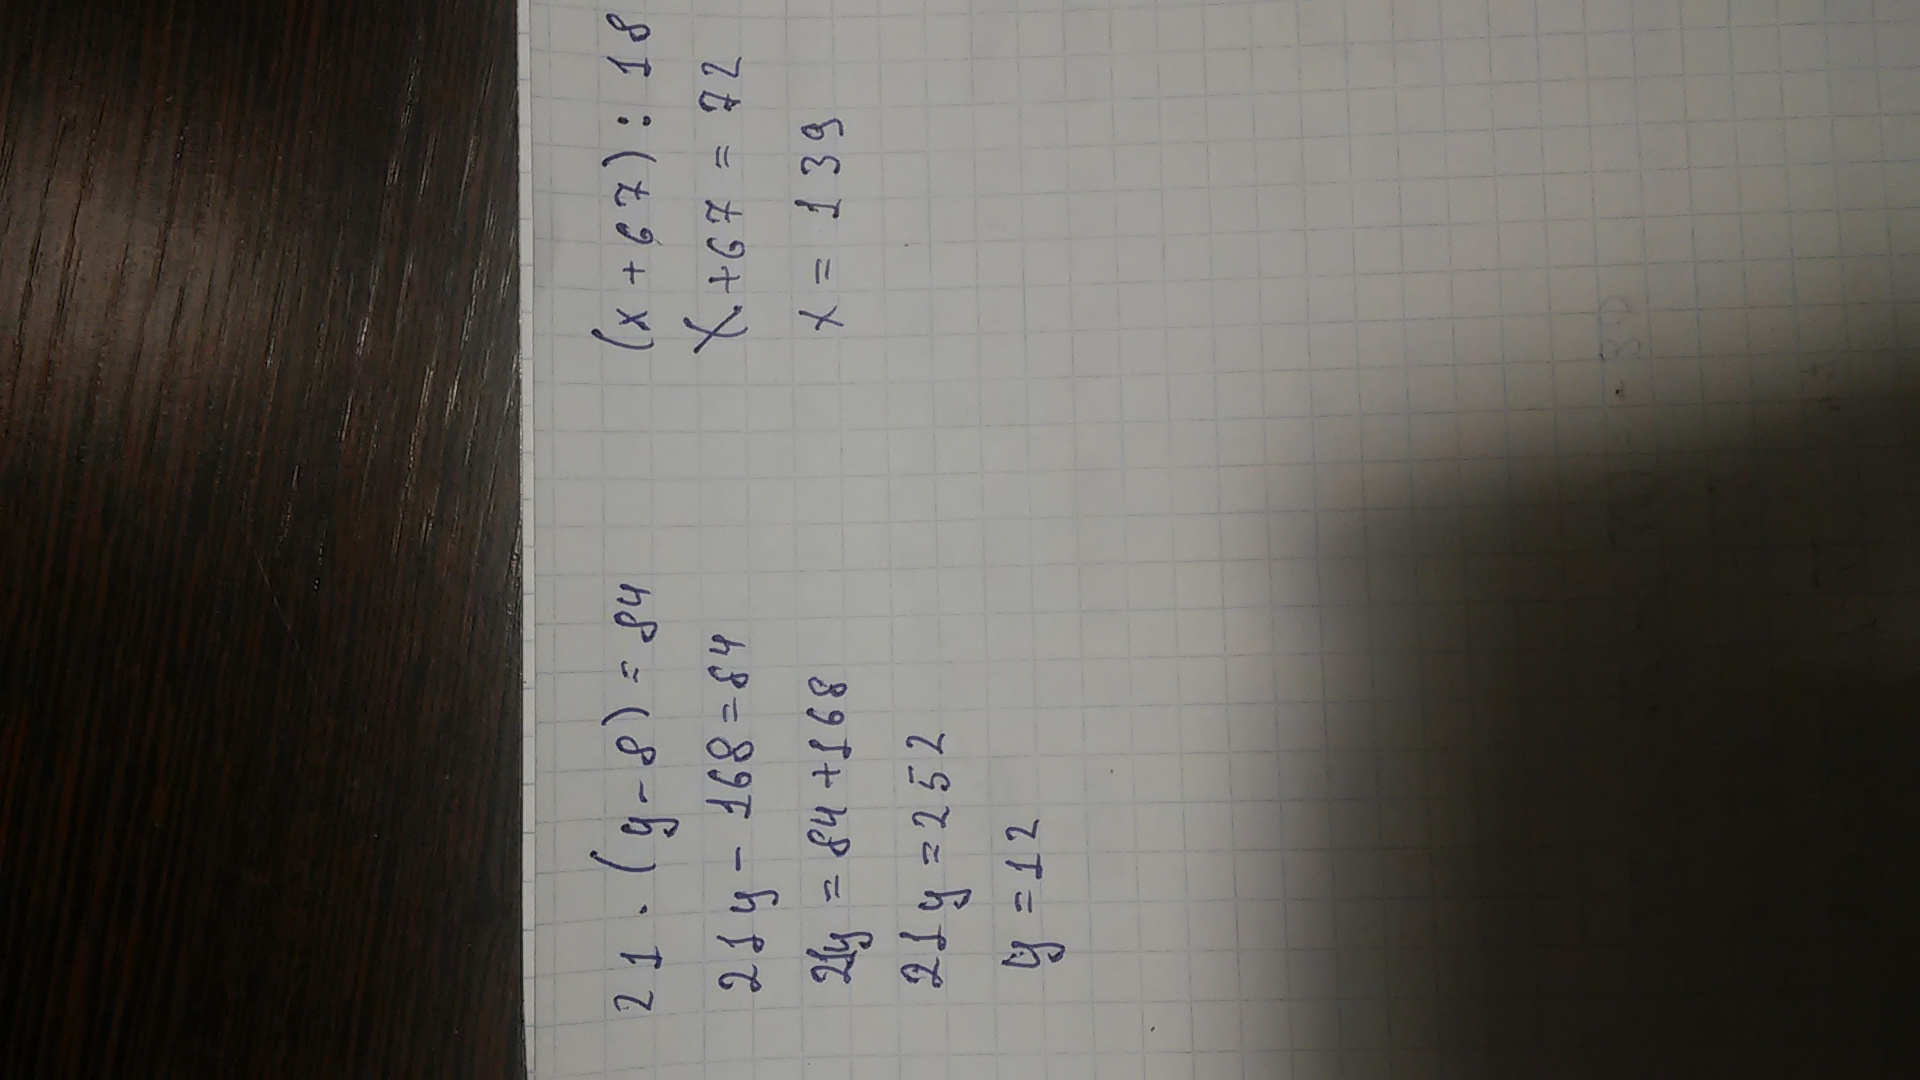 21 · (y - 8) = 84
21y - 168 = 84
21y = 84 + 168
21y = 252
y = 12
(x + 67) : 18
x + 67 = 72
x = 139